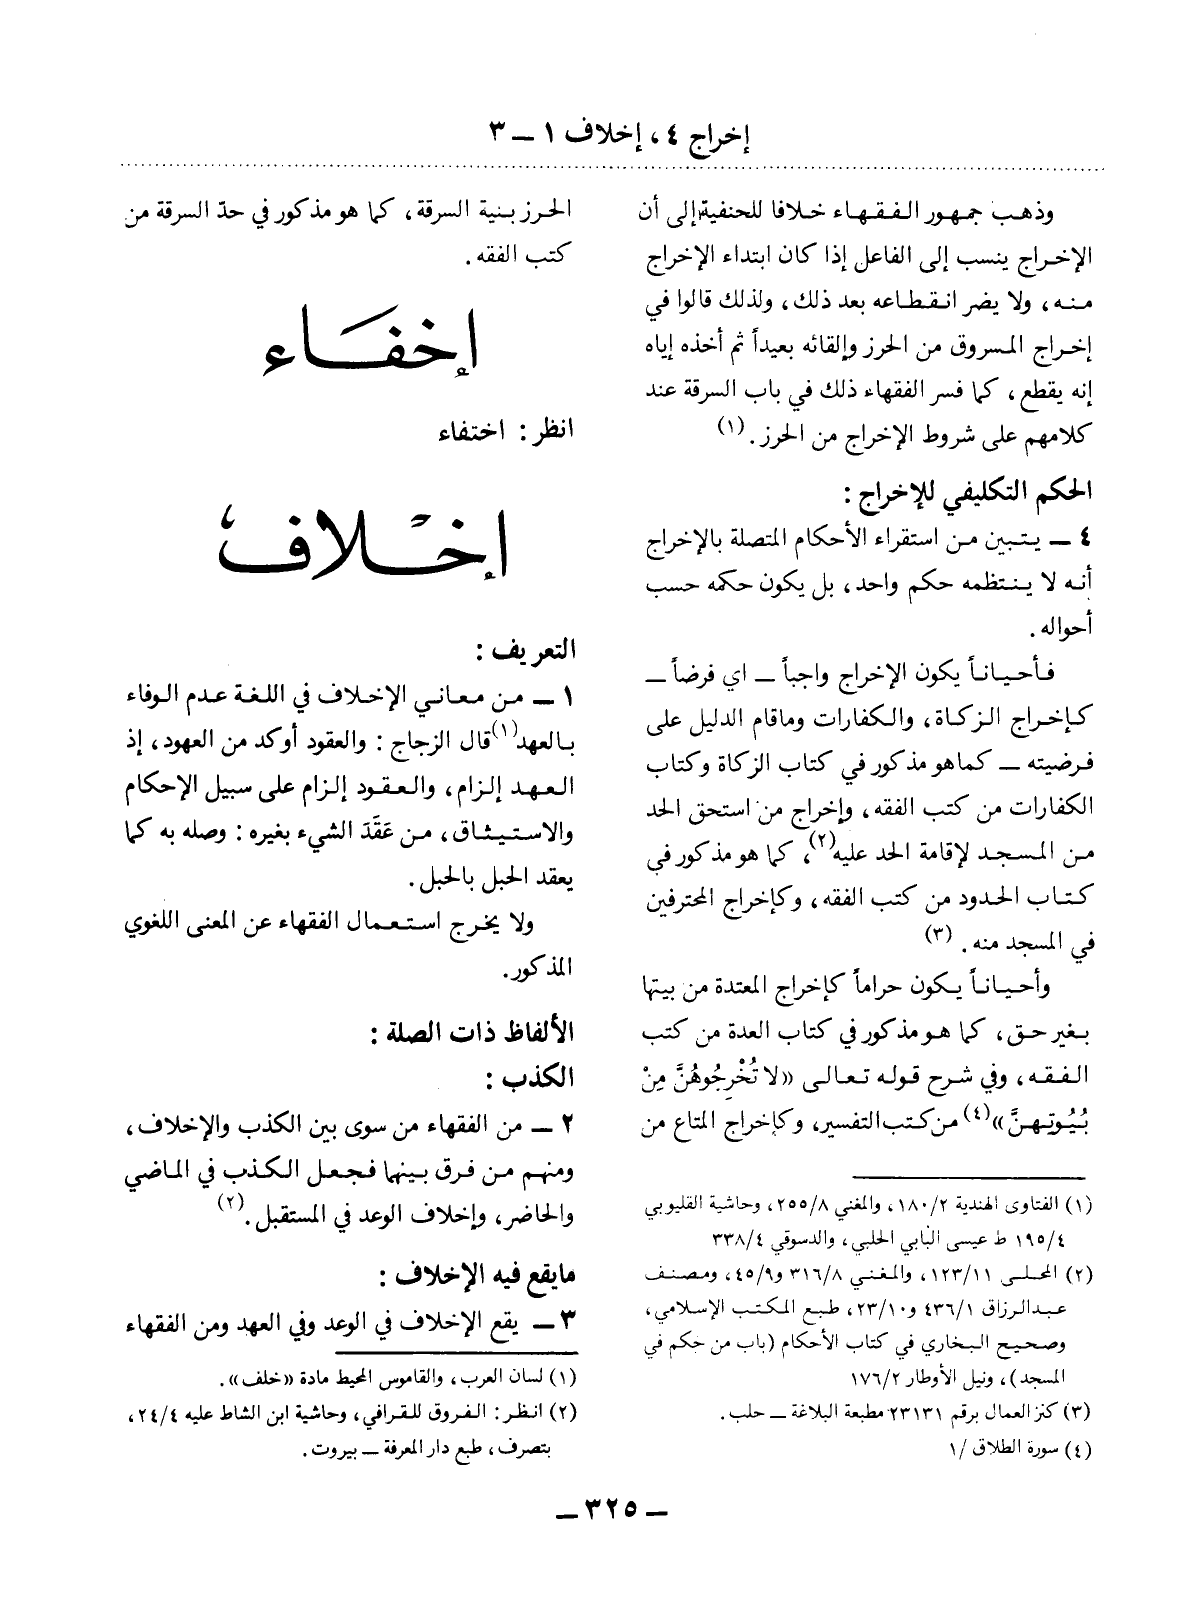 إخراج ٤ ، إخلاف ١ ــ ٣
وذهب جمهور الفقهاء خلافا للحنفية إلى أن
الإخراج ينسب إلى الفاعل إذا كان ابتداء الإخراج
منه ، ولا يضر انقطاعه بعد ذلك ، ولذلك قالوا في
إخراج المسروق من الحرز وإلقائه بعيداً ثم أخذه إياه
إنه يقطع ، كما فسر الفقهاء ذلك في باب السرقة عند
كلامهم على شروط الإخراج من الحرز . (١)
الحكم التكليفي للإخراج :
٤ ــ يتبين من استقراء الأحكام المتصلة بالإخراج
أنه لا ينتظمه حكم واحد ، بل يكون حكمه حسب
أحواله .
فأحياناً يكون الإخراج واجباً ــ اي فرضاً ــ
كإخراج الزكاة ، والكفارات وماقام الدليل على
فرضيته ــ كماهو مذكور في كتاب الزكاة وكتاب
الكفارات من كتب الفقه ، وإخراج من استحق الحد
من المسجد لإقامة الحد عليه(٢)، كما هو مذكور في
كتاب الحدود من كتب الفقه ، وكإخراج المحترفين
في المسجد منه . (٣)
وأحياناً يكون حراماً كإخراج المعتدة من بيتها
بغير حق ، كما هو مذكور في كتاب العدة من كتب
الفقه ، وفي شرح قوله تعالى «لا تُخْرِجُوهُنَّ مِنْ
بُيُوتِهِنَّ»(٤) من كتب التفسير، وكإخراج المتاع من
(١) الفتاوى الهندية ٢/ ١٨٠ ، والمغني ٨/ ٢٥٥ ، وحاشية القليوبي
٤/ ١٩٥ ط عيسى البابي الحلبي ، والدسوقي ٤/ ٣٣٨
(٢) المحلى ١١/ ١٢٣ ، والمغني ٨/ ٣١٦ و٩/ ٤٥ ، ومصنف
عبدالرزاق ١/ ٤٣٦ و١٠/ ٢٣ ، طبع المكتب الإسلامي ،
وصحيح البخاري في كتاب الأحكام (باب من حكم في
المسجد) ، ونيل الأوطار ٢/ ١٧٦
(٣) كنز العمال برقم ٢٣١٣١ مطبعة البلاغة ــ حلب .
(٤) سورة الطلاق /١
الحرز بنية السرقة ، كما هو مذكور في حدّ السرقة من
كتب الفقه .
إخفَاء
انظر : اختفاء
إخْلاف
التعريف :
١ ــ من معاني الإخلاف في اللغة عدم الوفاء
بالعهد(١) قال الزجاج : والعقود أوكد من العهود ، إذ
العهد إلزام ، والعقود إلزام على سبيل الإحكام
والاستيثاق ، من عَقَدَ الشيء بغيره : وصله به كما
يعقد الحبل بالحبل .
ولا يخرج استعمال الفقهاء عن المعنى اللغوي
المذكور.
الألفاظ ذات الصلة :
الكذب :
٢ ــ من الفقهاء من سوى بين الكذب والإخلاف ،
ومنهم من فرق بينهما فجعل الكذب في الماضي
والحاضر، وإخلاف الوعد في المستقبل . (٢)
مايقع فيه الإخلاف :
٣ ــ يقع الإخلاف في الوعد وفي العهد ومن الفقهاء
(١) لسان العرب ، والقاموس المحيط مادة «خلف» .
(٢) انظر : الفروق للقرافي ، وحاشية ابن الشاط عليه ٤/ ٢٤ ،
بتصرف ، طبع دار المعرفة ــ بيروت .
ــ ٣٢٥ ــ